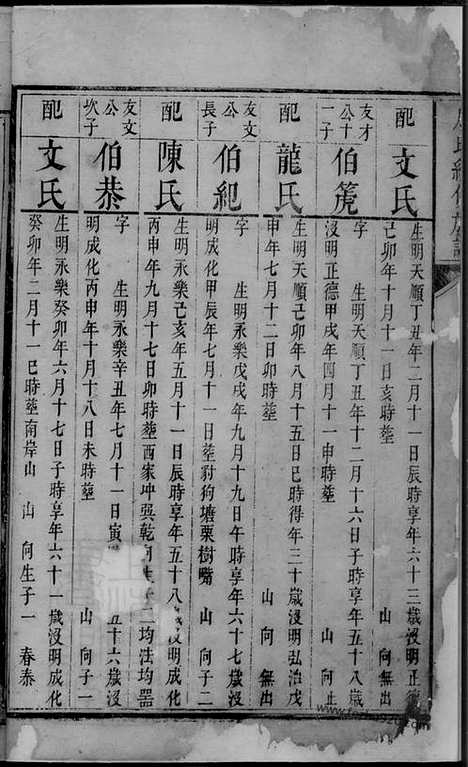 配
文氏
生明天順丁丑年二月十一日辰時享年六十三歲沒明正德
己卯年十月十一日亥時塟 山 向無出
友才
公十
一子
伯箎
字 生明天順丁丑年十二月十六日子時享年五十八歲
沒明正德甲戌年四月十一申時塟 山 向止
配
龍氏
生明天順己卯年八月十五日巳時得年三十歲沒明弘治戊
申年七月十二日卯時塟 山 向無出
友文
公
長子
伯紀
字 生明永樂戊戌年九月十九日午時享年六十七歲沒
明成化甲辰年七月十一日塟豺狗塘栗樹嘴 山 向子二
配
陳氏
生明永樂己亥年五月十一日辰時享年五十八沒明成化
丙申年九月十七日卯時塟西家冲巽乾向生子二均法均器
友文
公
次子
伯恭
字 生明永樂辛丑年七月十一日寅 五十六歲沒
明成化丙申年十月十八日未時塟 山 向子一
配
文氏
生明永樂癸卯年六月十七日子時享年六十一歲沒明成化
癸卯年二月十一巳時塟南岸山 山 向生子一 春泰